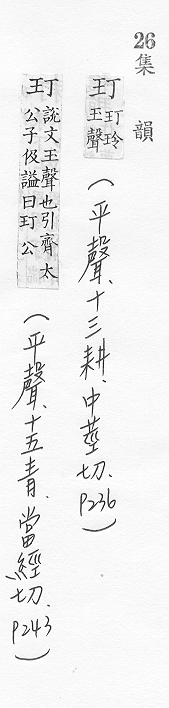 26 集韻
玎 玎玲
玉聲
(平聲.十三耕.中莖切.P236)
玎 說文玉聲也引齊太
公子伋謚曰玎公
(平聲.十五青.當經切.P243)